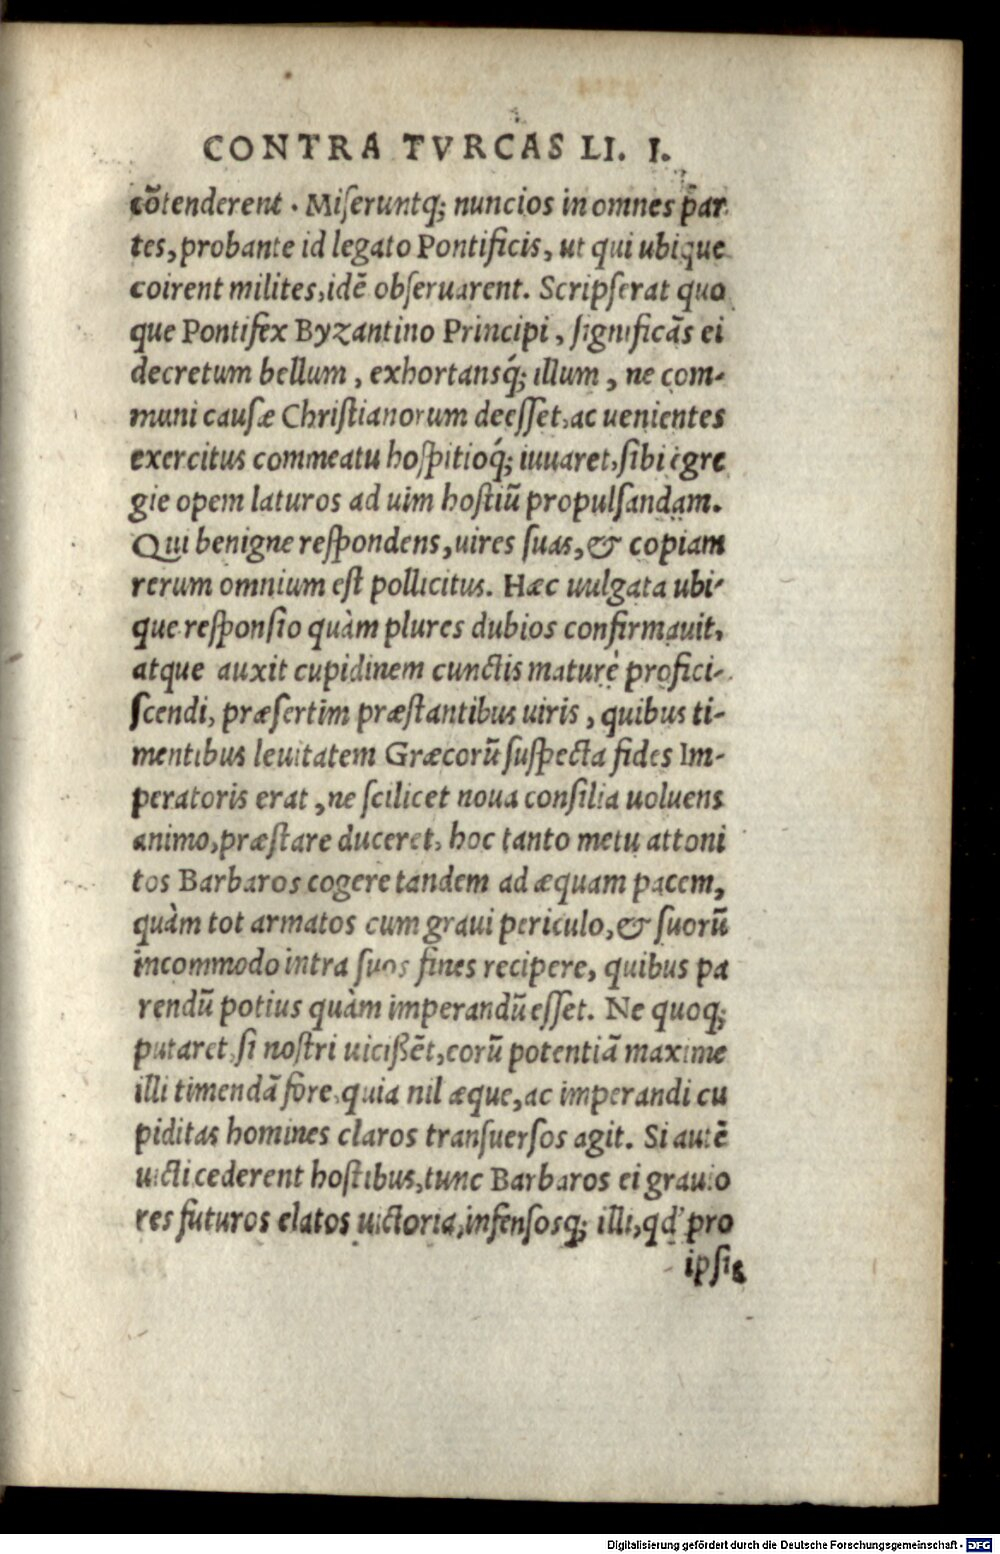 CONTRA TVRCAS LI. I.
cōtenderent . Miseruntq; nuncios in omnes par
tes, probante id legato Pontificis, ut qui ubique
coirent milites, idē obseruarent. Scripserat quo
que Pontifex Byzantino Principi, significās ei
decretum bellum, exhortansq́; illum, ne com-
muni causæ Christianorum deesset, ac uenientes
exercitus commeatu hospitioq́; iuuaret, sibi egre
gie opem laturos ad uim hostiū propulsandam.
Qui benigne respondens, uires suas, & copiam
rerum omnium est pollicitus. Hæc uulgata ubi-
que responsio quàm plures dubios confirmauit,
atque auxit cupidinem cunctis maturè profici-
scendi, præsertim præstantibus uiris, quibus ti-
mentibus leuitatem Græcorū suspecta fides Im-
peratoris erat, ne scilicet noua consilia uoluens
animo, præstare duceret, hoc tanto metu attoni
tos Barbaros cogere tandem ad æquam pacem,
quàm tot armatos cum graui periculo, & suorū
incommodo intra suos fines recipere, quibus pa
rendū potius quàm imperandū esset. Ne quoq;
putaret, si nostri uicißēt, eorū potentiā maxime
illi timendā fore, quia nil æque, ac imperandi cu
piditas homines claros transuersos agit. Si autē
uicti cederent hostibus, tunc Barbaros ei grauio
res futuros elatos uictoria, infensosq; illi, qd' pro
ipsis
Digitalisierung gefördert durch die Deutsche Forschungsgemeinschaft - DFG